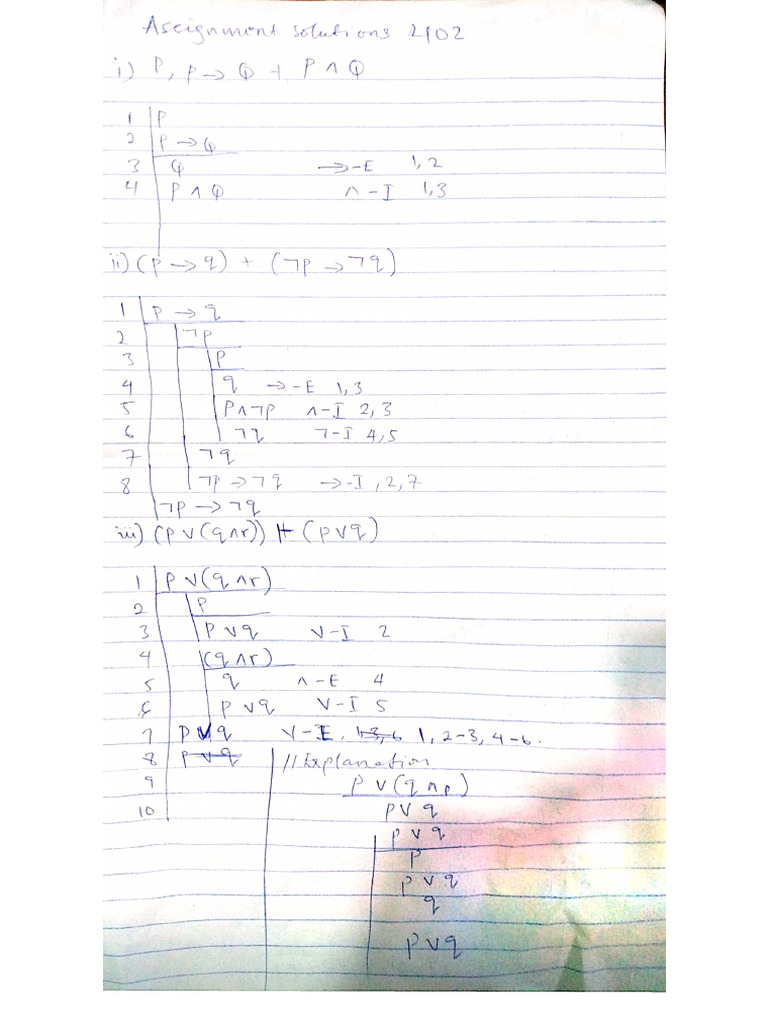 Asseignment solutions 2102
i) P, P → Q ⊢ P ∧ Q
1 P
2 P → Q
3 Q →-E 1,2
4 P ∧ Q ∧-I 1,3
ii) (P → q) ⊢ (¬P → ¬q)
1 P → q
2 ¬P
3 P
4 q →-E 1,3
5 P∧¬P ∧-I 2,3
6 ¬q ¬-I 4,5
7 ¬q
8 ¬P → ¬q →-I, 2,7
¬P → ¬q
iii) (P ∨ (q ∧ r)) ⊢ (P ∨ q)
1 P ∨ (q ∧ r)
2 P
3 P ∨ q ∨-I 2
4 (q ∧ r)
5 q ∧-E 4
6 P ∨ q ∨-I 5
7 P ∨ q ∨-E, 1,3,6 1, 2-3, 4-6.
8 P ∨ q //Explanation
9 P ∨ (q ∧ p)
10 P ∨ q
P ∨ q
P
P ∨ q
q
P ∨ q